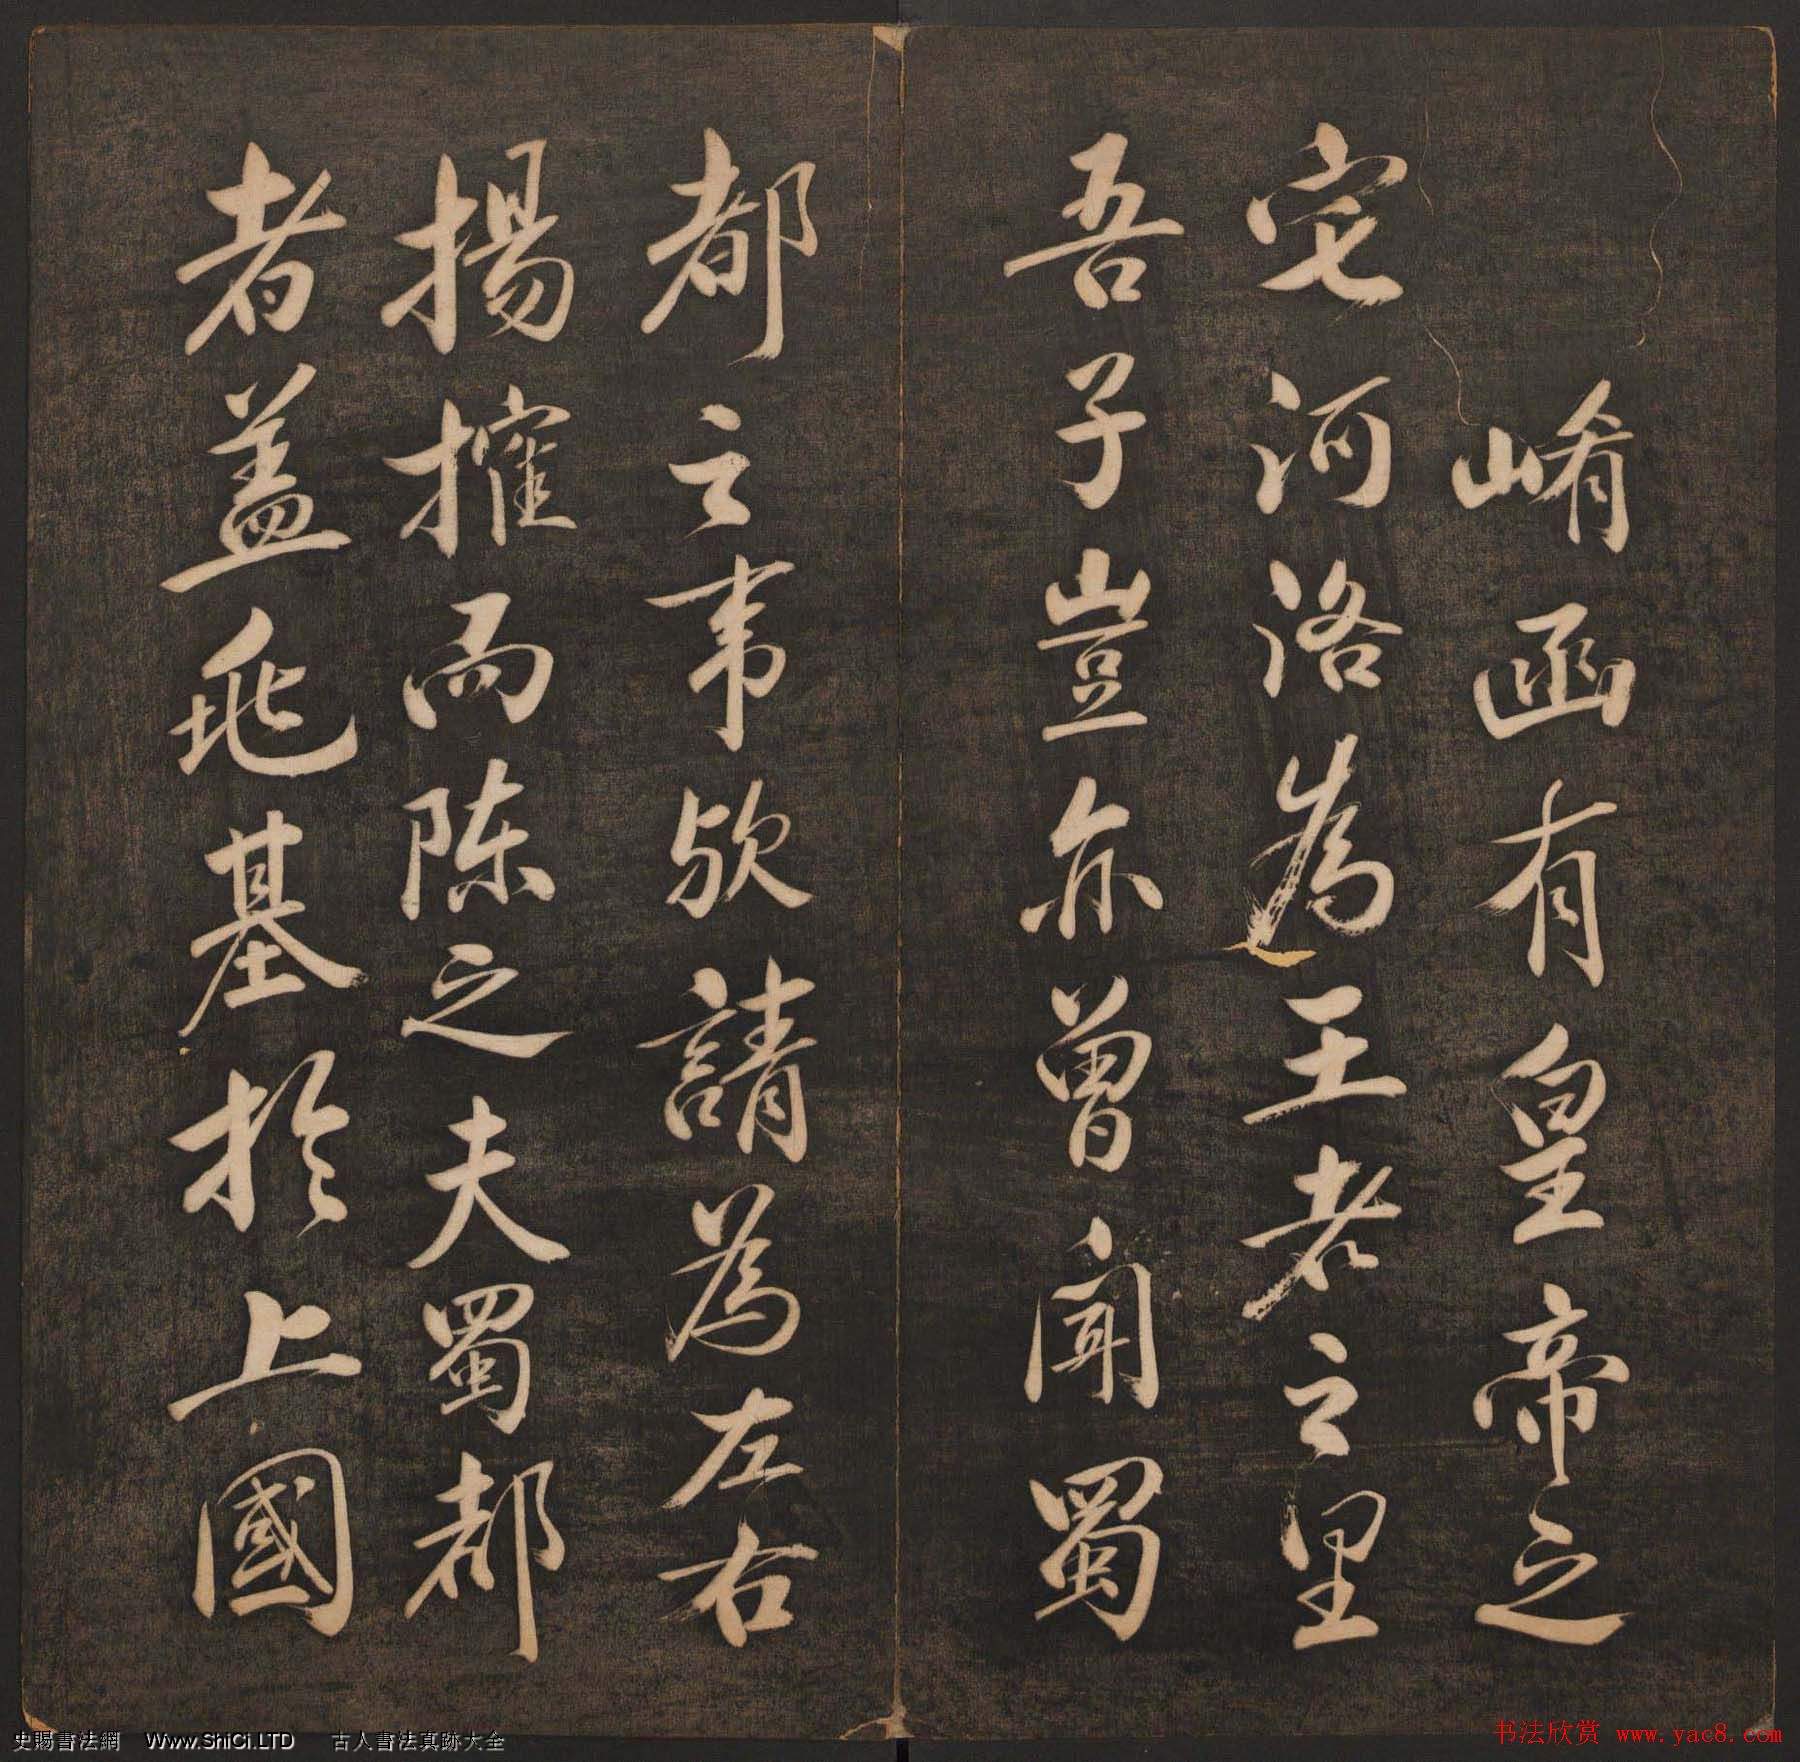 崤函有皇帝之
宅河洛為王者之里
吾子豈亦曾聞蜀
都之事歟請為左右
揚搉而陳之夫蜀都
者蓋兆基於上國
史賜書法網 Www.ShiCi.LTD 古人書法真跡大全
书法欣赏 www.yac8.com